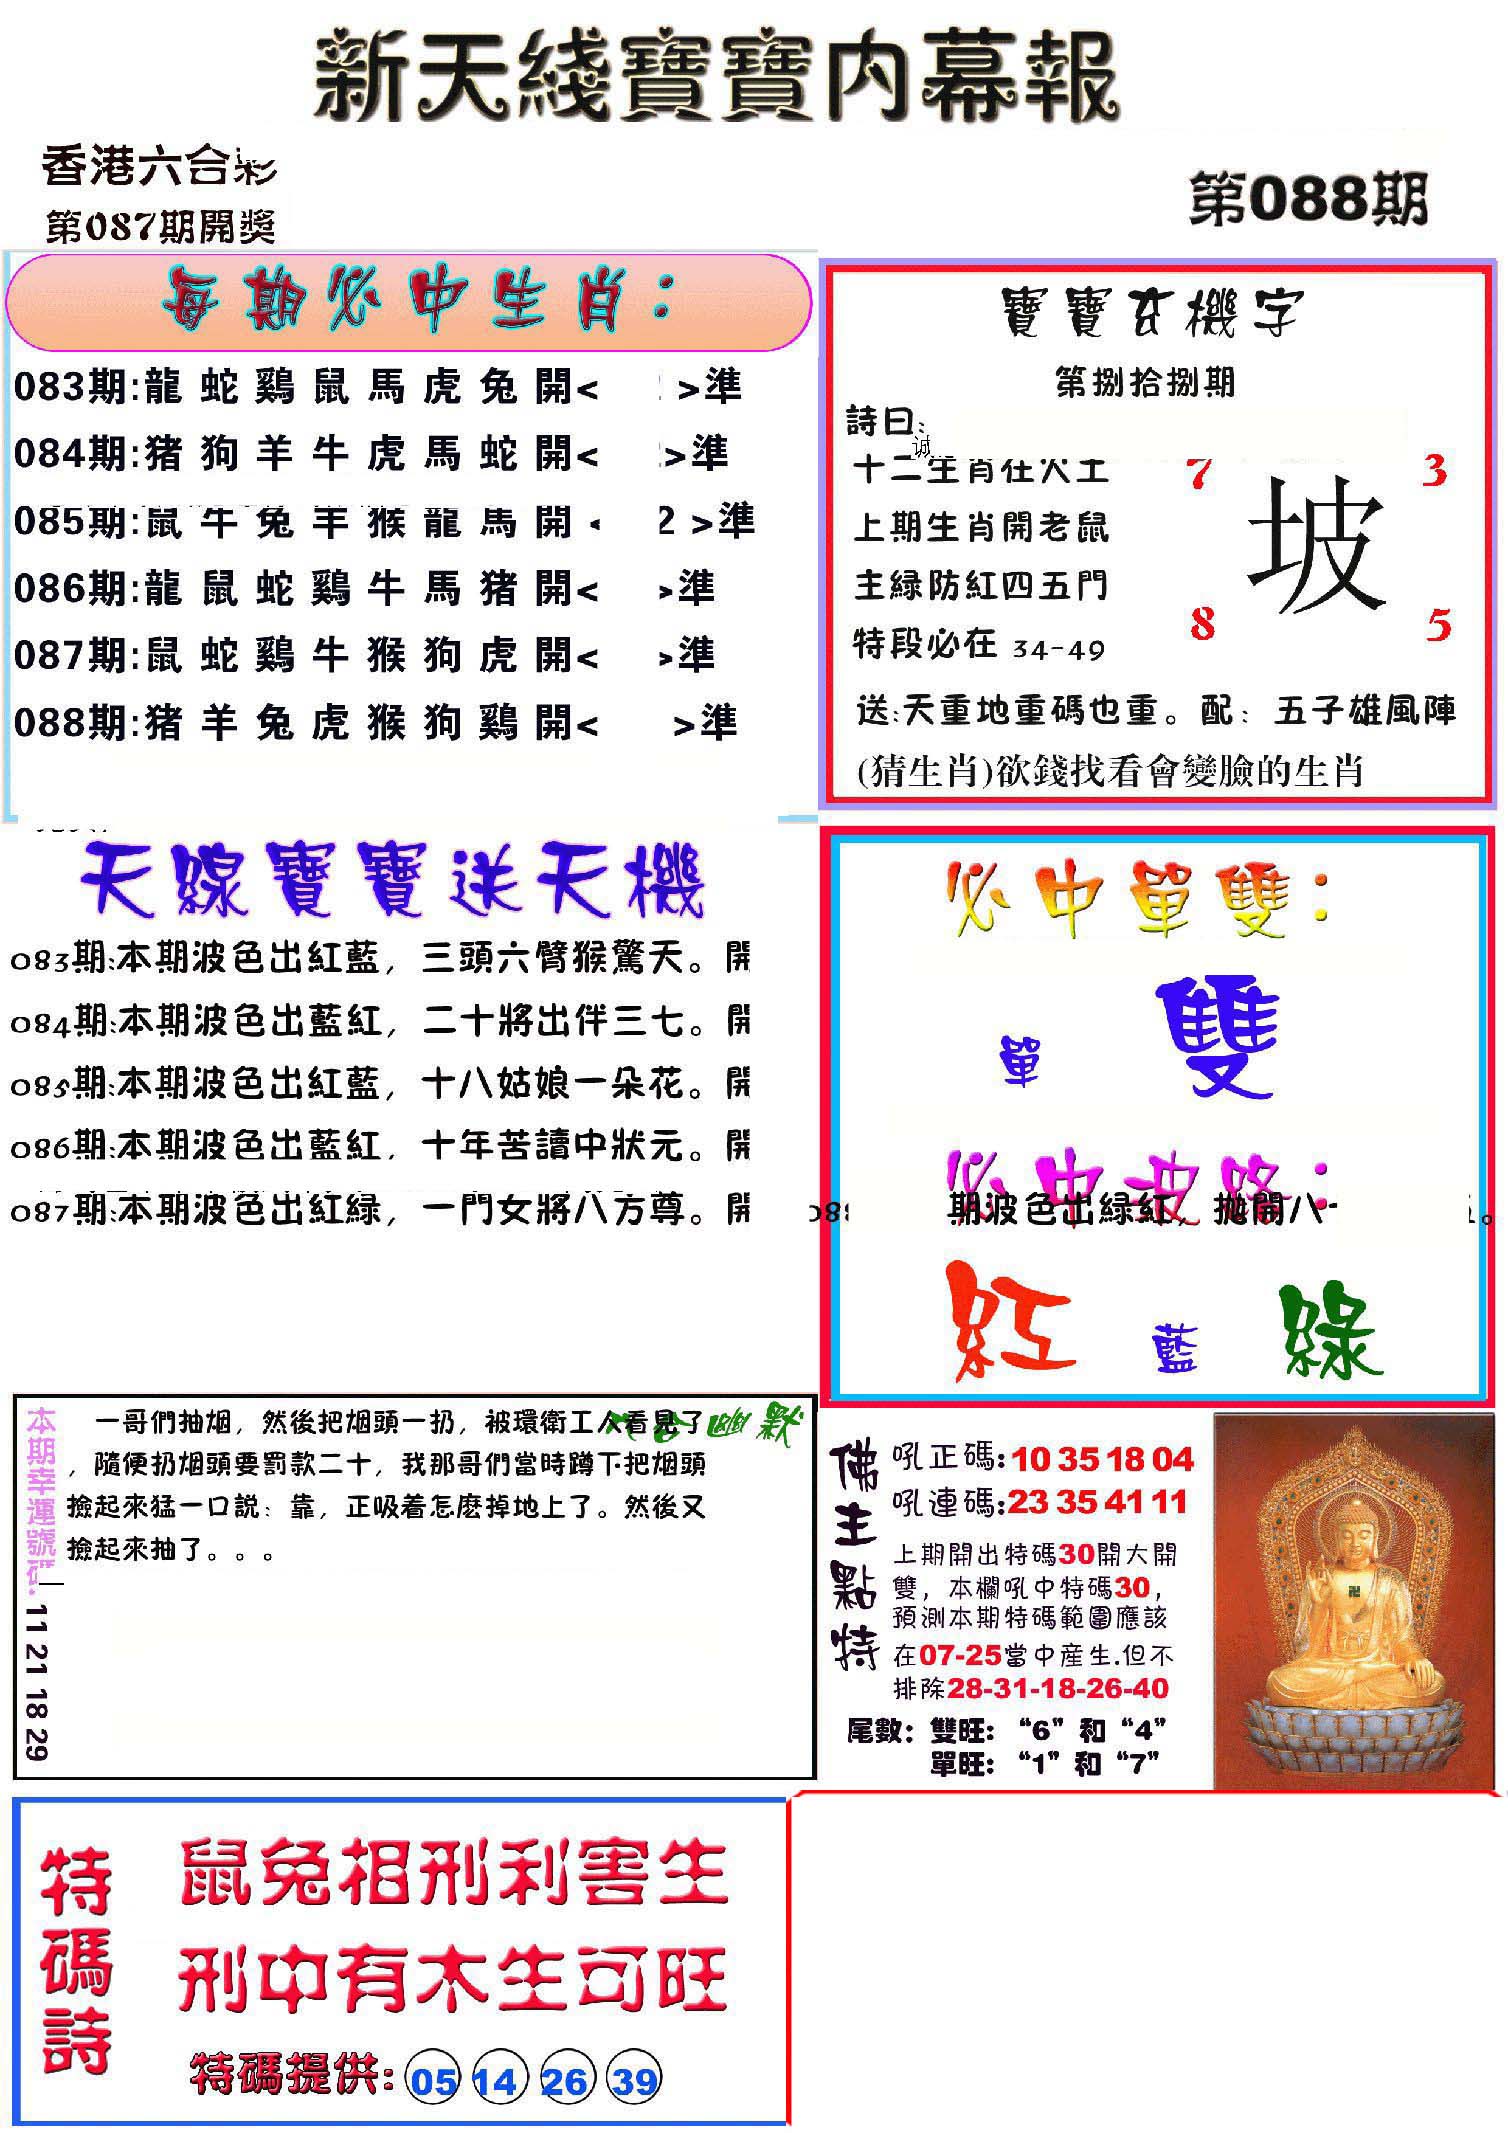 新天綫寶寶内幕報
香港六合彩
第087期開獎
第088期
每期必中生肖：
083期:龍蛇鷄鼠馬虎兔開< >準
084期:猪狗羊牛虎馬蛇開< >準
085期:鼠牛兔羊猴龍馬開< 2 >準
086期:龍鼠蛇鷄牛馬猪開< >準
087期:鼠蛇鷄牛猴狗虎開< >準
088期:猪羊兔虎猴狗鷄開< >準
寶寶玄機字
第捌拾捌期
詩曰:
诚
十二生肖在火土
上期生肖開老鼠
主緑防紅四五門
特段必在 34-49
7 3
坡
8 5
送:天重地重碼也重。配：五子雄風陣
(猜生肖)欲錢找看會變臉的生肖
天線寶寶送天機
083期:本期波色出紅藍，三頭六臂猴驚天。開
084期:本期波色出藍紅，二十將出伴三七。開
085期:本期波色出紅藍，十八姑娘一朵花。開
086期:本期波色出藍紅，十年苦讀中狀元。開
087期:本期波色出紅緑，一門女將八方尊。開
必中單雙：
單 雙
必中波路：
088 期波色出緑紅，拋開八 。
紅 藍 綠
六合幽默
一哥們抽烟，然後把烟頭一扔，被環衛工人看見了
，隨便扔烟頭要罰款二十，我那哥們當時蹲下把烟頭
撿起來猛一口説：靠，正吸着怎麽掉地上了。然後又
撿起來抽了。。。
本期幸運號碼:
11 21 18 29
佛主點特
吼正碼:10 35 18 04
吼連碼:23 35 41 11
上期開出特碼30開大開
雙，本欄吼中特碼30，
預測本期特碼範圍應該
在07-25當中産生.但不
排除28-31-18-26-40
尾數：雙旺：“6”和“4”
單旺：“1”和“7”
特碼詩
鼠兔相刑利害生
刑中有木生可旺
特碼提供: 05 14 26 39